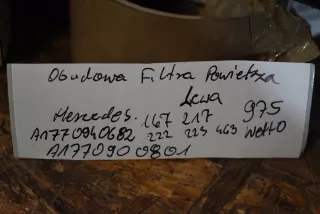 Obudowa Filtra Powietrza
Lewa
Mercedes. 167 217 975
A1770940682 222 223 463 netto
A1770900801